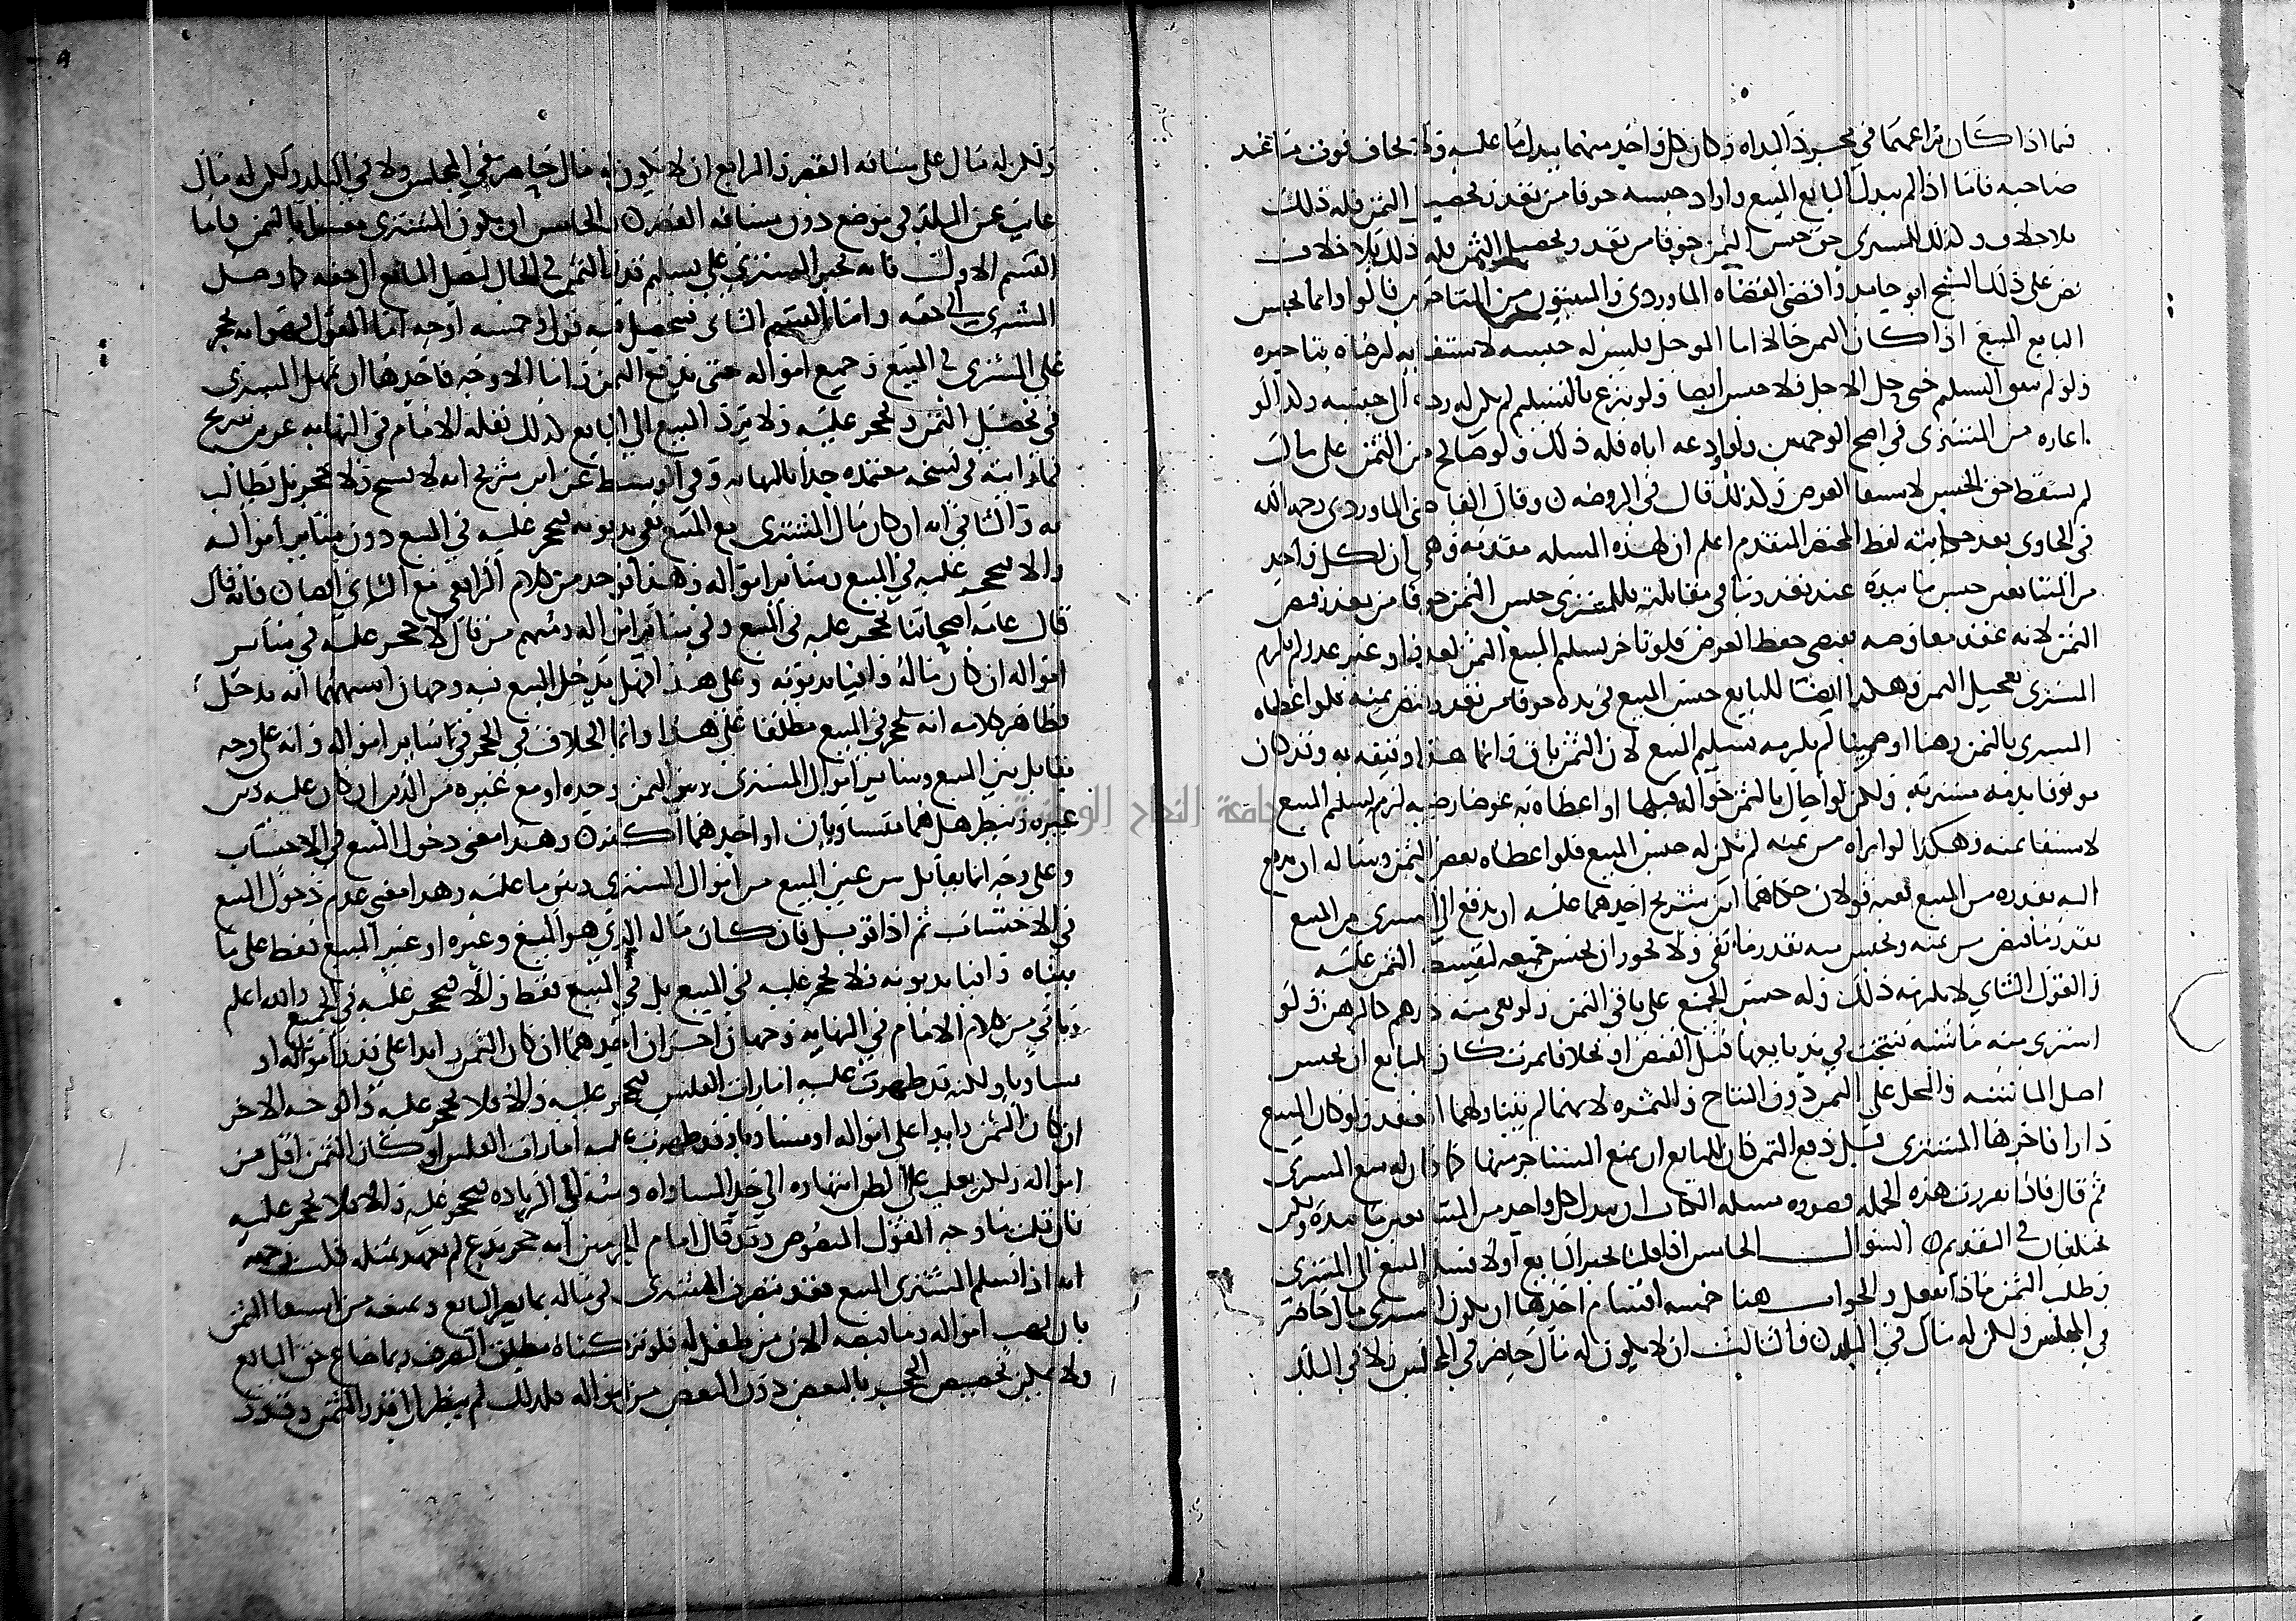 فيما اذا كان نزاعهما في مجرد البداه وكان كل واحد منهما يبدل ما عليه ولا يخاف فوت ما عند
صاحبه فاما اذا لم يبدل البايع المبيع واراد حبسه خوفا من تعذر تحصيل الثمن فله ذلك
بلا خلاف وكذلك للمشتري حق حبس الثمن خوفا من تعذر تحصيل فله ذلك بلا خلاف
نص على ذلك الشيخ ابو حامد واقضى القضاه الماوردي من المتاخرين قالوا وانما يحبس
البايع المبيع اذا كان الثمن حالا اما الموجل فليس له حبسه لاستيفايه لرضاه بتاخيره
ولو لم يتفق التسليم حتى حل الاجل فلا حبس ايضا ولو تبرع بالتسليم لم يكن له رده الى حبسه وكذا لو
اعاره من المشتري في اصح الوجهين ولو اودعه اياه فله ذلك ولو صالح من الثمن على مال
لم يسقط حق الحبس لاستيفا العوض ولذلك قال في الروضه وقال القاضي الماوردي رحمه الله
في الحاوي بعد حكايته لفظ المختصر المتقدم اعلم ان لهذه المسله مقدمه وهي ان لكل واحد
من المتبايعين حبس ما بيده عند تعذر ما في مقابلته فللمشتري حبس الثمن خوفا من تعذر قبض
الثمن لانه عقد معاوضه يقتضي حفظ العوض فلو تاخر تسليم المبيع الثمن لعذر او غير عذر لم يلزم
المشتري تعجيل الثمن وهكذا ايضا للبايع حبس المبيع في يده خوفا من تعذر قبض ثمنه فلو اعطاه
المشتري بالثمن رهنا او ضمينا لم يلزمه تسليم المبيع لان الثمن باق وانما هذا وثيقه به وقد كان
موثوقا بذمه مشتريه ولكن لو احال بالثمن حواله قبلها او اعطاه به عوضا رضيه لزم تسليم المبيع
لاستيفا ثمنه وهكذا لو ابراه من ثمنه لم يكن له حبس المبيع فلو اعطاه بعض الثمن وساله ان يدفع
اليه بقدره من المبيع ففيه قولان حكاهما ابن شريح احدهما عليه ان يدفع الى المشتري من المبيع
بقدر ما قبض من ثمنه ويحبس منه بقدر ما بقى ولا يجوز ان يحبس جميعه لتقسيط الثمن عليه
والقول الثاني لا يلزمه ذلك وله حبس الجميع على باقي الثمن ولو بقى منه درهم كالرهن ولو
اشترى منه ماشيه نتجت في يد بايعها قبل القبض او نخلا فاثمرت كان للبايع ان يحبس
اصل الماشيه والنخل على الثمن دون النتاج والثمره لانهما لم يتناولهما العقد ولو كان المبيع
دارا فاجرها المشتري قبل دفع الثمن كان للبايع ان يمنع المستاجر منها كما كان له منع المشتري
ثم قال فاذا تقررت هذه الجمله فصوره مسله الكتاب ان يبدل كل واحد من المتبايعين ما بيده ولكن
يختلفان في التقديم السوال الخامس اذا قلنا يجبر البايع اولا فسلم المبيع الى المشتري
وطلب الثمن ماذا يفعل والجواب هنا خمسه اقسام احدها ان يكون للمشتري مال حاضر
في المجلس ولكن له مال في البلد والثالث ان لا يكون له مال حاضر في المجلس ولا في البلد
ولكن له مال على مسافه القصر والرابع ان لا يكون له مال حاضر في المجلس ولا في البلد ولكن له مال
غايب عن البلد في موضع دون مسافه القصر والخامس ان يكون المشتري معسرا بالثمن فاما
القسم الاول فانه يجبر المشتري على تسليم قدر الثمن في الحال ليصل البايع الى حقه كما وصل
المشتري الى حقه واما القسم الثاني فيحصل فيه قول وخمسه اوجه اما القول فهو انه يحجر
على المشتري في المبيع وجميع امواله حتى يدفع الثمن واما الاوجه فاحدها ان يمهل المشتري
في تحصيل الثمن ولا يحجر عليه ولا يرد المبيع الى البايع كذلك نقله الامام في النهايه عن ابن شريح
كما رايته في نسخه معتمده جدا بالنهايه وفي الوسيط عن ابن شريح انه لا يفسخ ولا يحجر بل يطالب
به والثاني انه ان كان مال المشتري مع المبيع يفي بديونه فيحجر عليه في المبيع دون سائر امواله
والا فيحجر عليه في المبيع وسائر امواله وهذا يوخذ من كلام الرافعي مع الثاني ايضا فانه قال
قال عامه اصحابنا يحجر عليه في المبيع وفي سائر امواله ومنهم من قال لا يحجر عليه في سائر
امواله ان كان ماله وافيا بديونه وعلى هذا فهل يدخل المبيع فيه وجهان اشبههما انه يدخل
فظاهر كلامه انه يحجر في المبيع مطلقا على هذا وانما الخلاف في الحجر في سائر امواله وانه على وجه
يقابل بين المبيع وسائر اموال المشتري وبين الثمن وحده او مع غيره من الدين ان كان عليه دين
غيره وينظر هل هما متساويان او احدهما اكثر وهذا معنى دخول المبيع في الاحتساب
وعلى وجه انما يقابل بين غير المبيع من اموال المشتري وبين ما عليه وهذا معنى عدم دخول المبيع
في الاحتساب ثم اذا قوبل فان كان ماله الذي هو المبيع وغيره او غير المبيع فقط على ما
بيناه وافيا بديونه فلا يحجر عليه في المبيع بل في المبيع فقط والا فيحجر عليه في الجميع والله اعلم
وياتي من كلام الامام في النهايه وجهان اخران احدهما ان كان الثمن زايدا على قدر امواله او
مساويا ولكن قد ظهرت عليه امارات الفلس فيحجر عليه والا فلا يحجر عليه والوجه الاخر
ان كان الثمن زايدا على امواله او مساويا وقد ظهرت عليه امارات الفلس او كان الثمن اقل من
امواله ولكن يغلب على الظن انتهاوه الى حد المساواه ومنه الى الزياده فيحجر عليه والا فلا يحجر عليه
فان قلت ما وجه القول المنصوص وقد قال امام الحرمين انه حجر بدع لم يعهد مثله قلت وجهه
انه اذا تسلم المشتري المبيع فقد يتصرف المشتري في ماله بما يضر البايع ويمنعه من استيفا الثمن
بان يهب امواله وما قبضه الان من طفل له فلو تركناه مطلق التصرف ربما ضاع حق البايع
ولا يمكن تخصيص الحجر بالبعض دون البعض من امواله فلذلك لم ينظر الى قدر الثمن وقدر